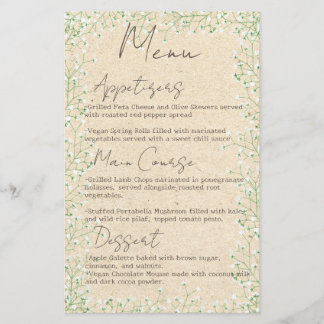 Menu
Appetizers
-Grilled Feta Cheese and Olive Skewers served
with roasted red pepper spread
-Vegan Spring Rolls filled with marinated
vegetables served with a sweet chili sauce
Main Course
-Grilled Lamb Chops marinated in pomegranate
molasses, served alongside roasted root
vegetables.
-Stuffed Portabella Mushroom filled with kale
and wild rice pilaf, topped tomato pesto.
Dessert
-Apple Galette baked with brown sugar,
cinnamon, and walnuts.
-Vegan Chocolate Mousse made with coconut milk
and dark cocoa powder.